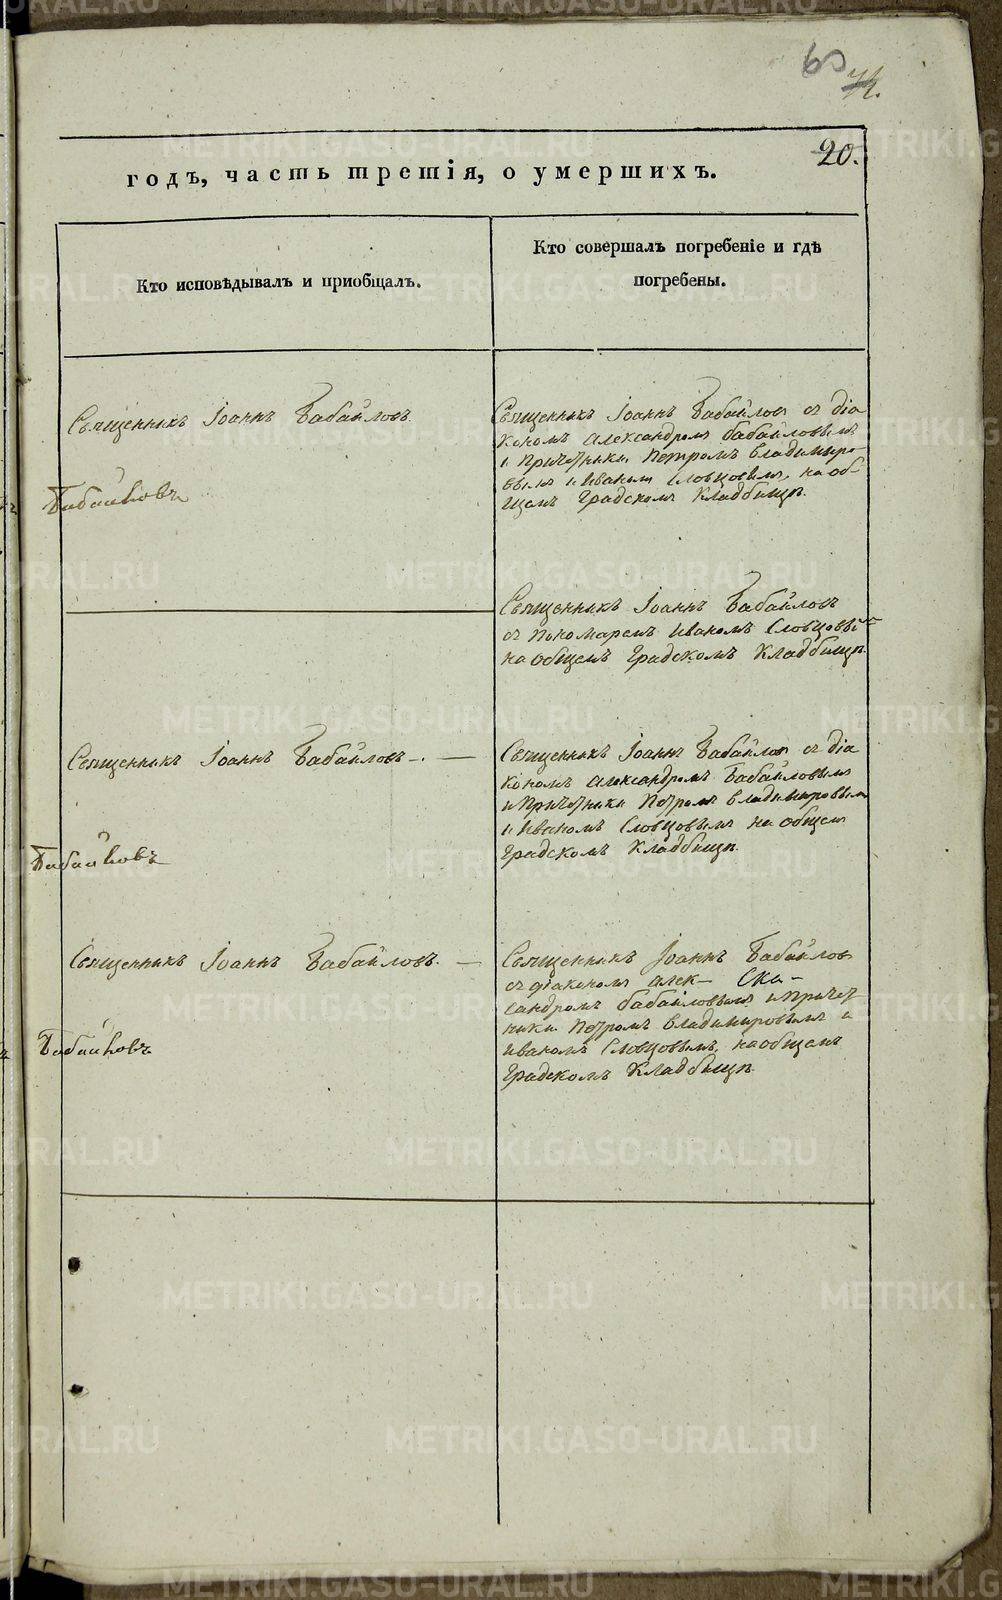 65
20.
годъ, часть третія, о умершихъ.
Кто исповѣдывалъ и приобщалъ.
Кто совершалъ погребеніе и гдѣ
погребены.
Священникъ Іоаннъ Бабайловъ.
Священникъ Іоаннъ Бабайловъ съ діа
кономъ Александромъ Бабайловымъ
и причетники Петромъ Владимиро-
вымъ и Иваномъ Словцовымъ, на об-
щемъ градскомъ кладбищѣ.
Священникъ Іоаннъ Бабайловъ
съ пономаремъ Иваномъ Словцовы
на общемъ градскомъ кладбищѣ.
Священникъ Іоаннъ Бабайловъ
Священникъ Іоаннъ Бабайловъ съ діа
кономъ Александромъ Бабайловымъ
и причетники Петромъ Владимировым
и Иваномъ Словцовымъ на общемъ
градскомъ кладбищѣ.
Священникъ Іоаннъ Бабайловъ.
Священникъ Іоаннъ Бабайловъ
съ діакономъ Алек-
сандромъ Бабайловымъ и причет
ники Петромъ Владимировымъ и
Иваномъ Словцовымъ, на общемъ
градскомъ кладбищѣ.
METRIKI.GASO-URAL.RU